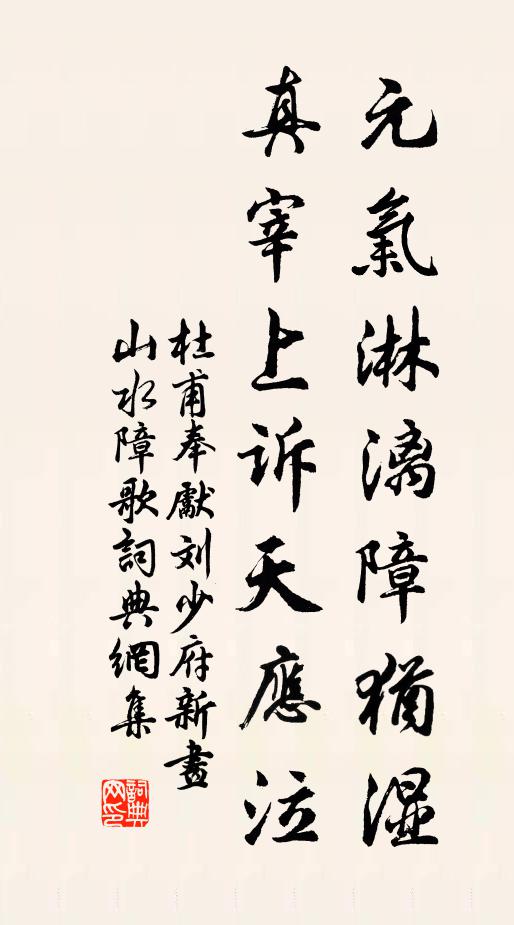 元氣淋漓障猶濕
真宰上诉天應泣
杜甫奉獻刘少府新畫
山水障歌詞典網集
詞典网印